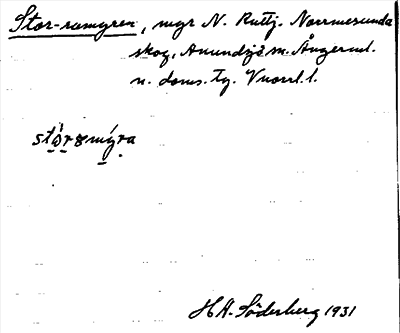 Stor-romyren, myr N. Ruttj. Norrmesunda
skog, Anundsjö sn. Ångerml.
n. doms. tg. Vuorrl. l.
stòrømýra
H. H. Söderberg 1931